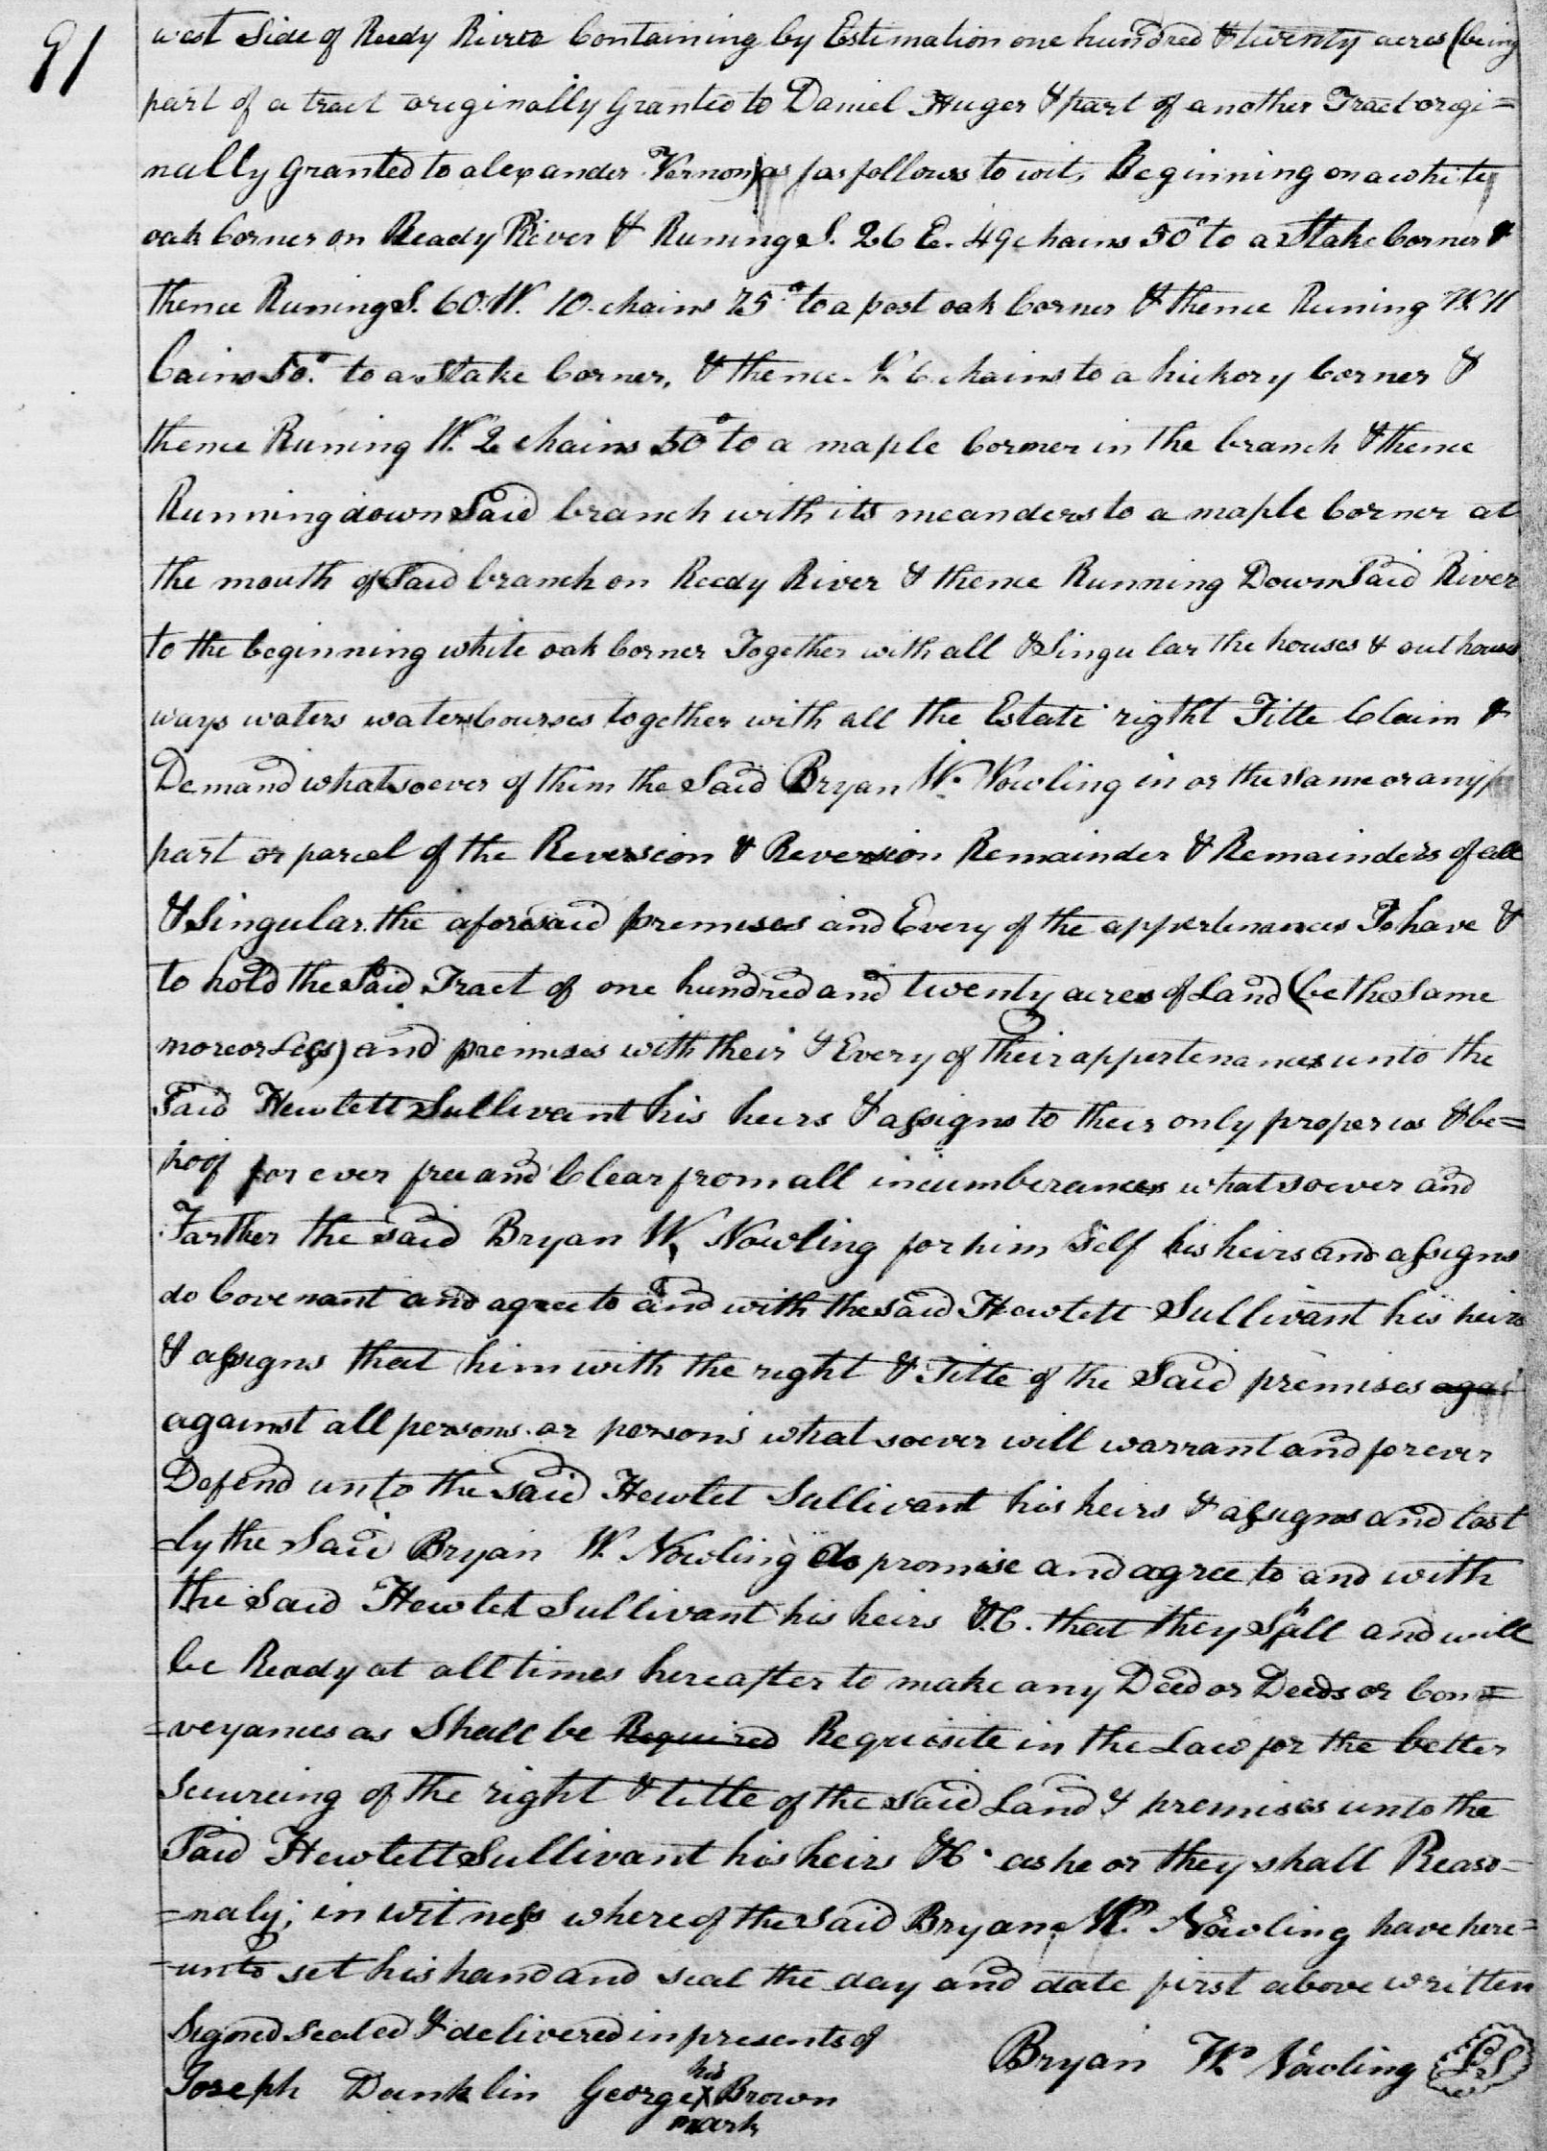 91
west Side of Reedy River Containing by Estimation one hundred & twenty acres (being
part of a tract originally Granted to Daniel Huger & part of another Tract origi=
nally Granted to alexander Vernon) as follows to wit, Beginning on a white
oak Corner on Ready River & Runing S. 26 E. 49 chains 50° to a Stake Corner &
thence Runing S. 60. W. 10. chains 75° to a post oak Corner & thence Runing 11
Cains 50.° to a Stake Corner, & thence 6 chains to a hickory Corner &
thence Runing W. 2 chains 50° to a maple Corner in the branch & thence
Running down Said branch with its meanders to a maple Corner at
the mouth of Said branch on Reedy River & thence Running Down Said River
to the beginning white oak Corner Together with all & Singular the houses & out houses
ways waters waters Courses together with all the Estate rigtht Title Claim &
Demand whatsoever of him the Said Bryan W. Nowling in or the same or any
part or parcel of the Reverscion & Reversion Remainder & Remainders of all
& Singular the aforesaid premises and Every of the appertenances To have &
to hold the Said Tract of one hundred and twenty acres of Land (be the Same
more or Less) and premises with their & Every of their appertenances unto the
Said Hewlett Sullivant his heirs & assigns to their only proper us & be=
hoof for ever free and Clear from all incumberances whatsoever and
Farther the said Bryan W. Nowling for him Self his heirs and assigns
do Covenant and agree to and with the said Hewlett Sullivant his heirs
& assigns that him with the right & Title of the Said premises agai
against all persons or persons whatsoever will warrant and forever
Defend unto the said Hewlet Sullivant his heirs & assigns and last
ly the Said Bryan W. Nowling do promise and agree to and with
the Said Hewlet Sullivant his heirs &C. that they Shall and will
be Ready at all times hereafter to make any Deed or Deeds or Con=
=veyances as Shall be Required Requisite in the Law for the better
Secureing of the right & title of the said Land & premises unto the
Said Hewlett Sullivant his heirs &C. as he or they shall Reaso=
=naly; in witness whereof the Said Bryan W. Nowling have here=
=unto set his hand and seal the day and date first above written
Signed Sealed & delivered in presents of
Bryan W. Nowling LS
his
Joseph Dunklin George X Brown
mark